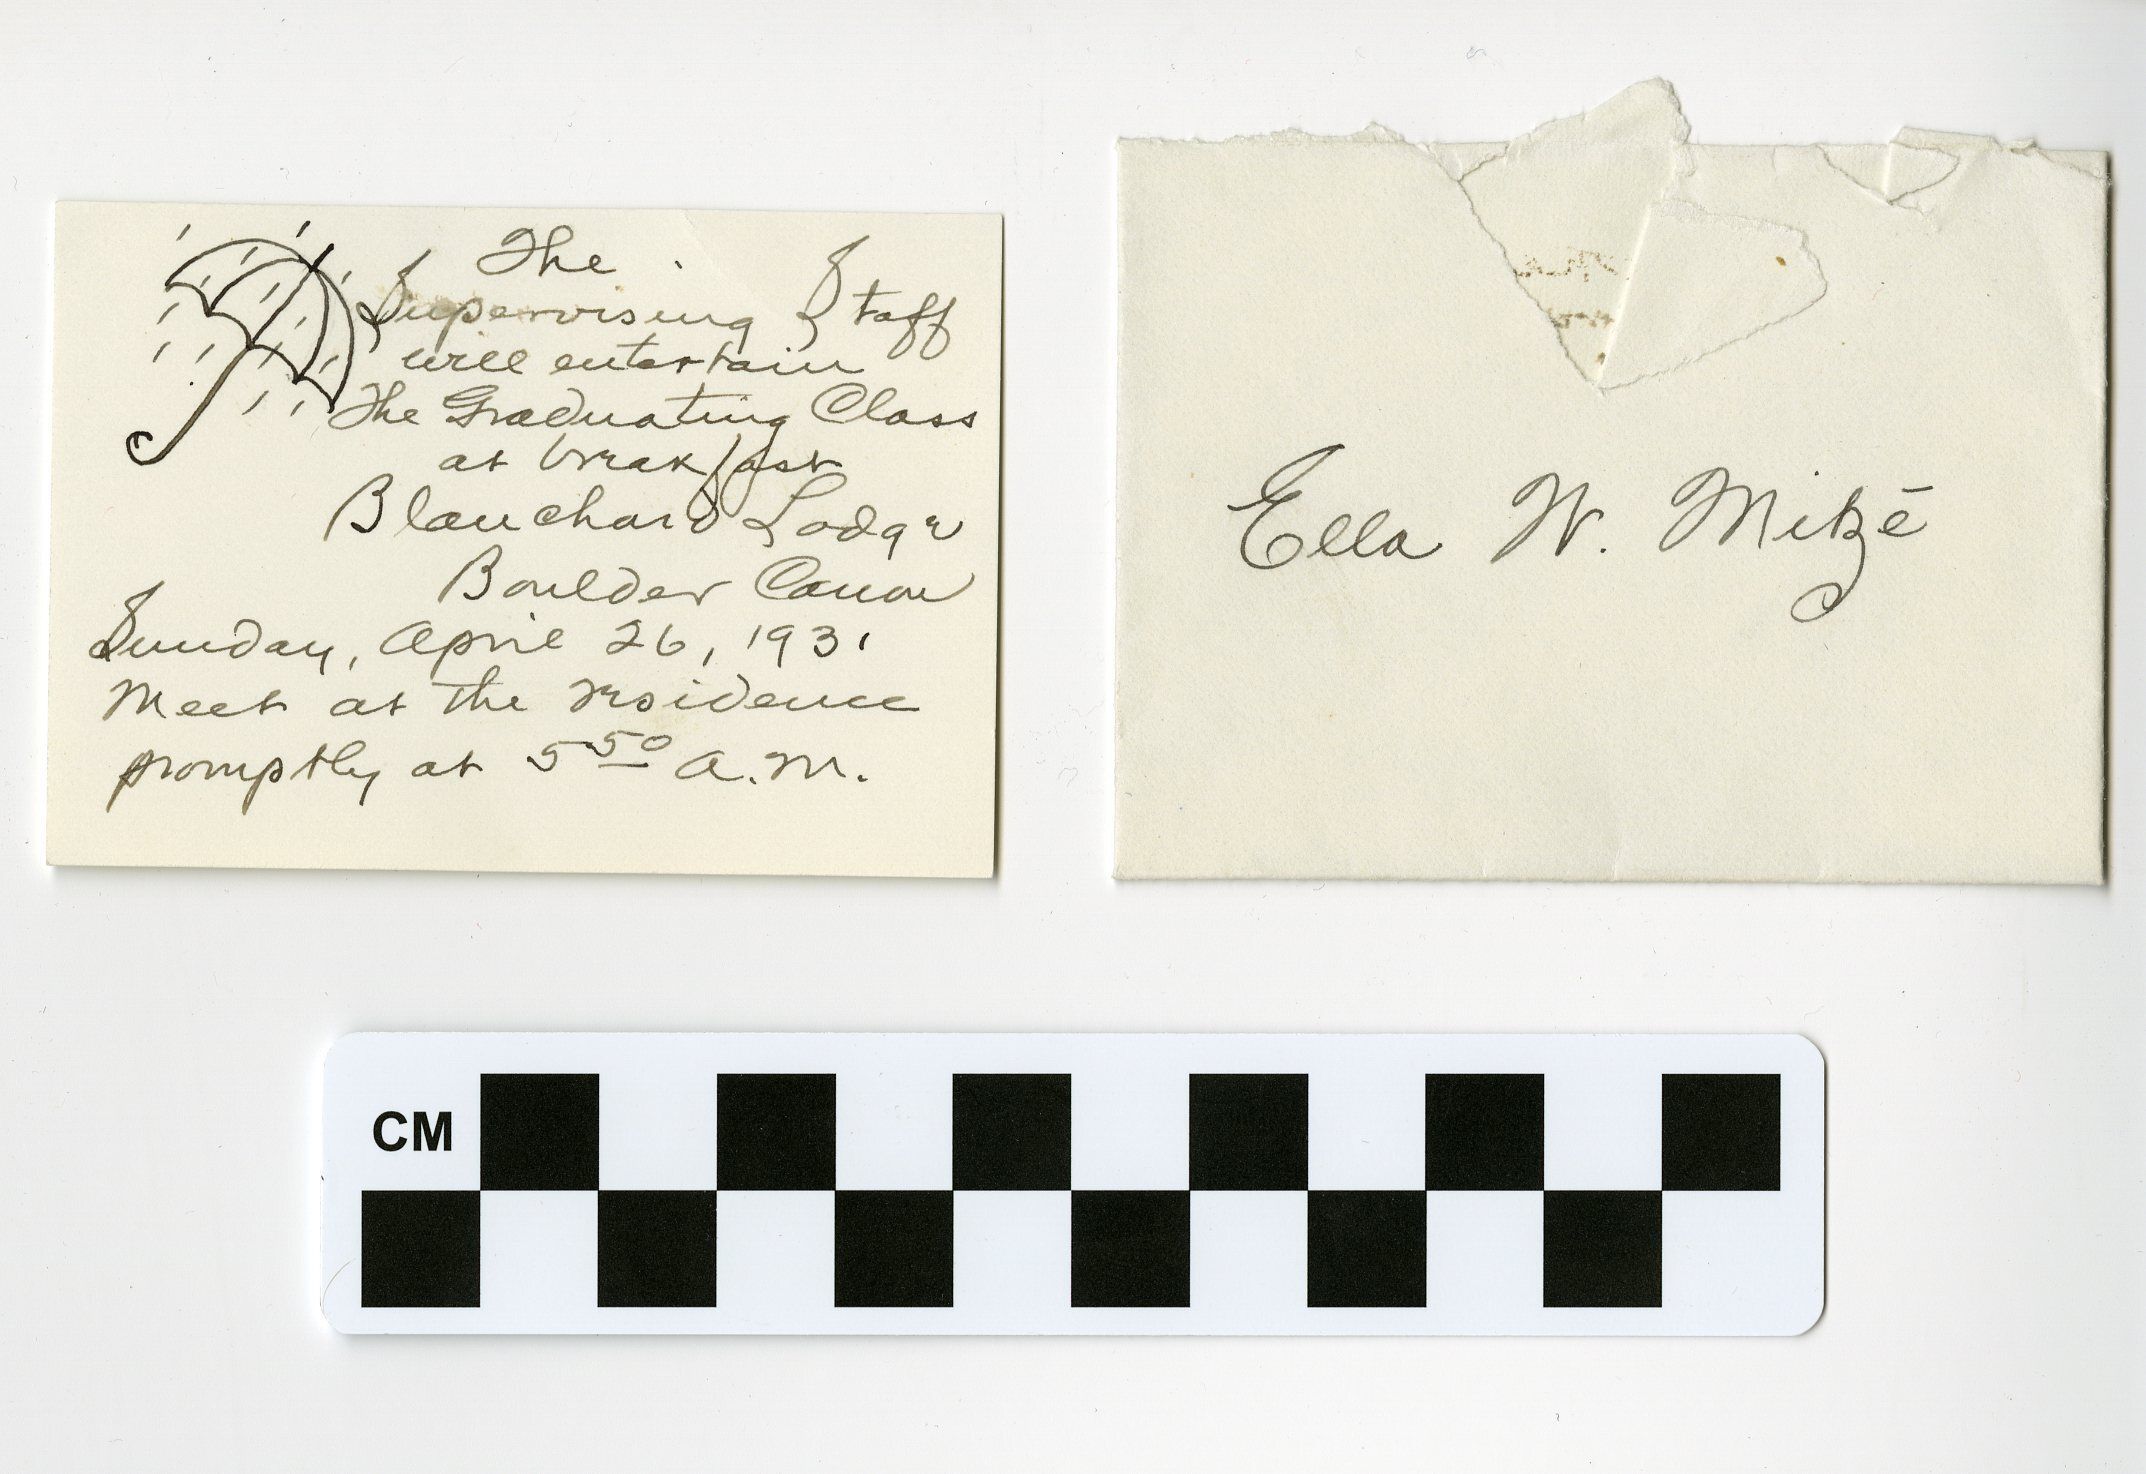 The
Supervising Staff
will entertain
The Graduating Class
at breakfast
Blanchard Lodge
Boulder Canon
Sunday, April 26, 1931
Meet at the residence
promptly at 5 50 A.M.
Ella W. Mitzē
CM